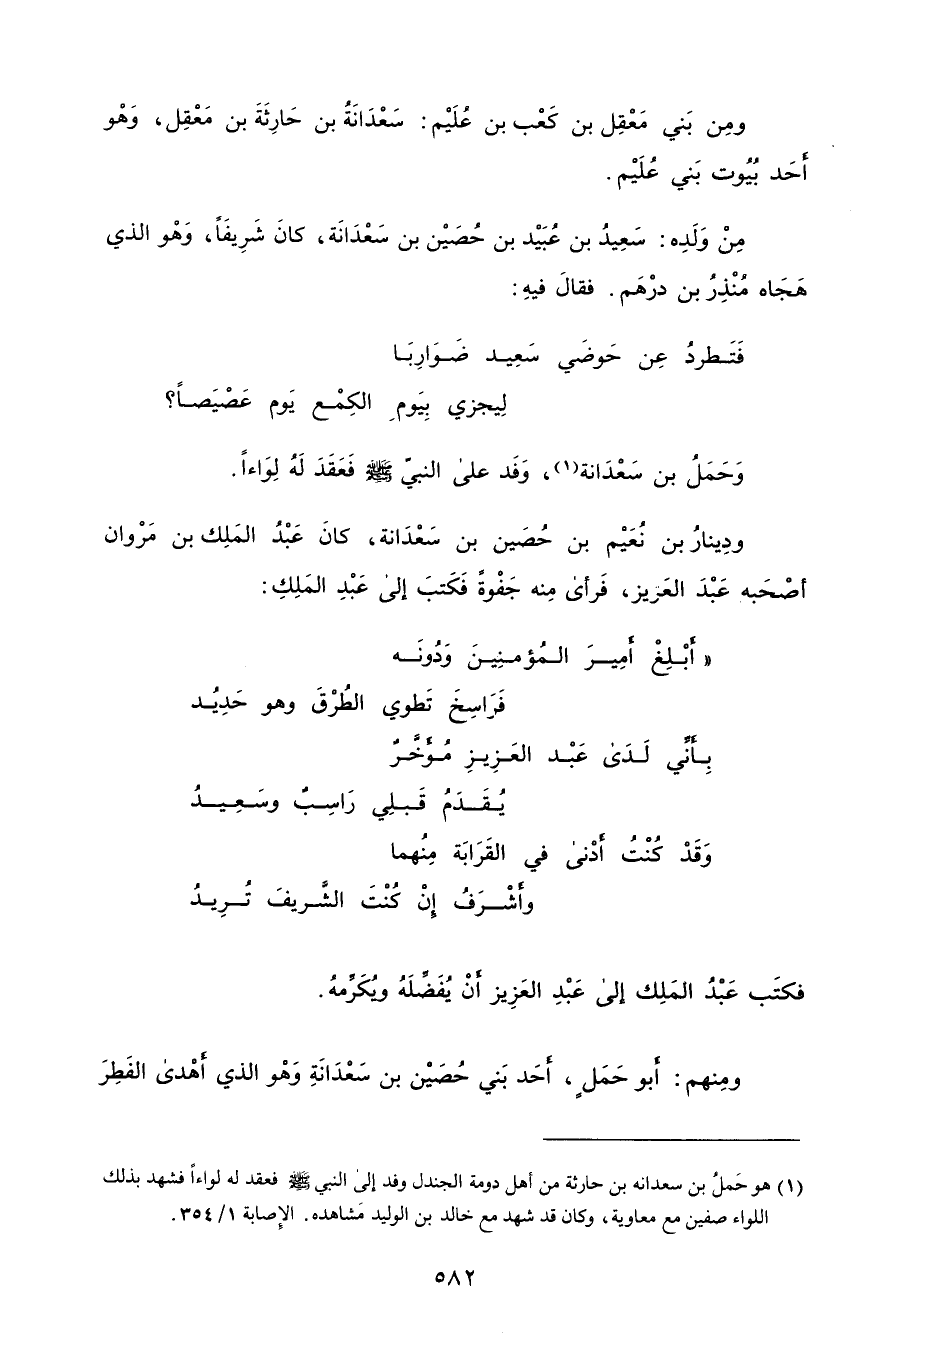 ومِن بَني مَعْقِل بن كَعْب بن عُلَيْم: سَعْدَانَةُ بن حَارِثَةَ بن مَعْقِل، وَهْو
أَحَد بُيُوت بَني عُلَيْم.
مِنْ وَلَدِه: سَعِيدُ بن عُبَيْد بن حُصَيْن بن سَعْدَانَة، كانَ شَرِيفَاً، وَهْو الذي
هَجَاه مُنْذِرُ بن دِرْهَم. فقالَ فيهِ:
فَتَطردُ عِن حَوضَي سَعِيد ضَوَارِبَا
لِيجزي بِيَومِ الكِمْع يَوم عَصْيَصاً؟
وَحَمَلُ بن سَعْدَانة(١)، وَفَد على النبيّ ﷺ فَعَقَدَ لَهُ لِوَاءاً.
ودِينارُ بن نُعَيْم بن حُصَين بن سَعْدَانة، كانَ عَبْدُ المَلِك بن مَرْوان
أصْحَبه عَبْدَ العَزيز، فَرأى مِنه جَفْوةً فَكتبَ إلى عَبْدِ المَلِكِ:
« أَبْلِغْ أَمِيرَ المُؤمنِينَ وَدُونَه
فَرَاسِخَ تَطوي الطُرْقَ وهو حَدِيُد
بِأنِّي لَدَى عَبْد العَزِيزِ مُؤَخَّرٌ
يُقَدَمُ قَبلِي رَاسِبٌ وسَعِيدُ
وَقَدْ كُنْتُ أَدْنى في القَرَابَة مِنُهما
وأَشْرَفُ إِنْ كُنْتَ الشَّريفَ تُرِيدُ
فكتَب عَبْدُ المَلِك إلى عَبْدِ العَزِيز أَنْ يُفَضِّلَهُ ويُكَرِّمهُ.
ومِنهم: أَبو حَمَلٍ، أَحَد بَني حُصَيْن بن سَعْدَانَةِ وَهْو الذي أَهْدىٰ الفَطِرَ
(١) هو حَملُ بن سعدانه بن حارثة من أهل دومة الجندل وفد إلى النبي ﷺ فعقد له لواءاً فشهد بذلك
اللواء صفين مع معاوية، وكان قد شهد مع خالد بن الوليد مَشاهده. الإصابة ١/ ٣٥٤.
٥٨٢